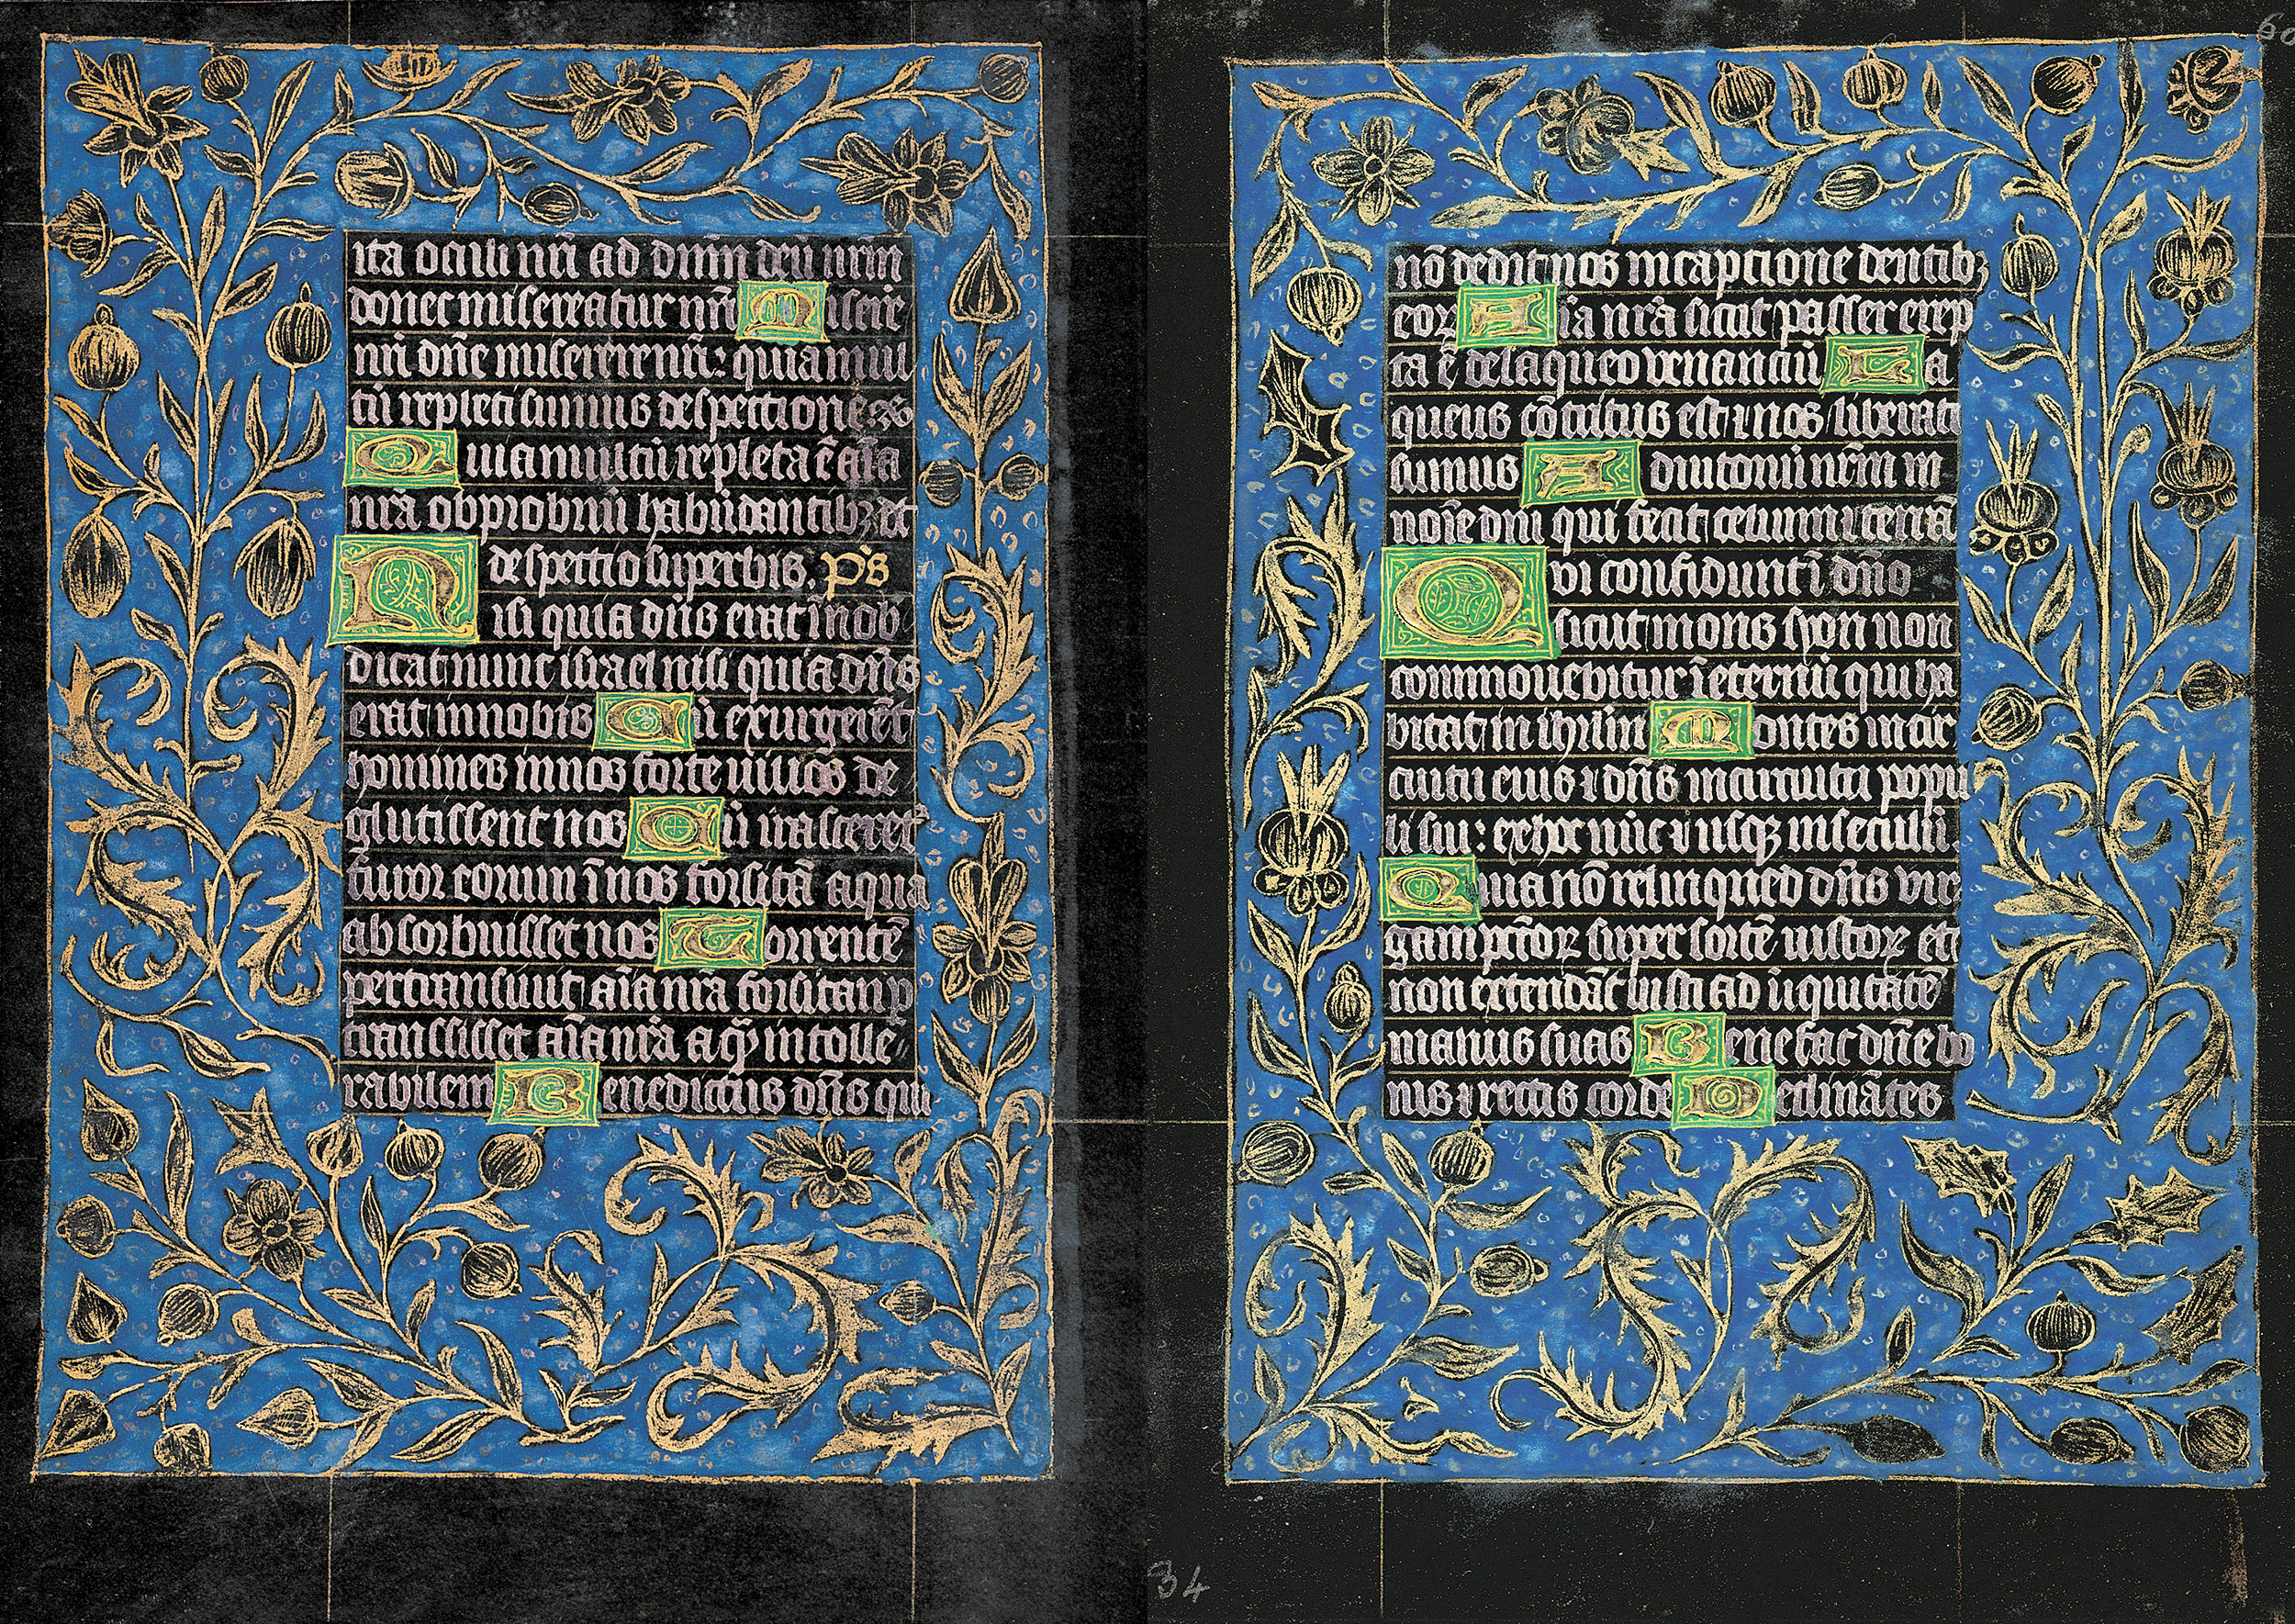 ita oculi nr̄i ad dn̄m deū nr̄m
donec misereatur nr̄i Misere
nr̄i dn̄e miserere nr̄i: quia mul
tū repleti sumus despectione
Quia multū repleta ē aīa
nr̄a obprobriū habūdantibꝫ et
despectio superbis. p̄s
Nisi quia dn̄s erat ī nob
dicat nunc israel nisi quia dn̄s
erat in nobis Cū exurgerēt
homines in nos forte viuos de
glutissent nos Cū irasceret᷑
furor eorum ī nos forsitā aqua
absorbuisset nos Torrentē
pertransiuit aīa nr̄a forsitan p
transsisset aīa nr̄a aq̄ intolle
rabilem Benedictus dn̄s qui
nō dedit nos in captione dentibꝫ
eoꝝ Aīa nr̄a sicut passer erep
ta ē de laqueo venantiū La
queus cōtritus est ⁊ nos liberati
sumus Adiutoriū nr̄m in
noīe dn̄i qui fecit celum ⁊ terrā
Qui confidunt ī dn̄o
sicut mons syon non
commouebitur ī eternū qui ha
bitat in ihrl̄m Montes in cir
cuitu eius ⁊ dn̄s in circuitu popu
li sui: ex hoc nūc ⁊ usqꝫ in seculū.
Quia nō relinquet dn̄s vir
gam pc̄toꝝ super sortē iustoꝝ
non extendāt iusti ad īiquitatē
manus suas Benefac dn̄e bo
nis ⁊ rectis corde Declinātes
34